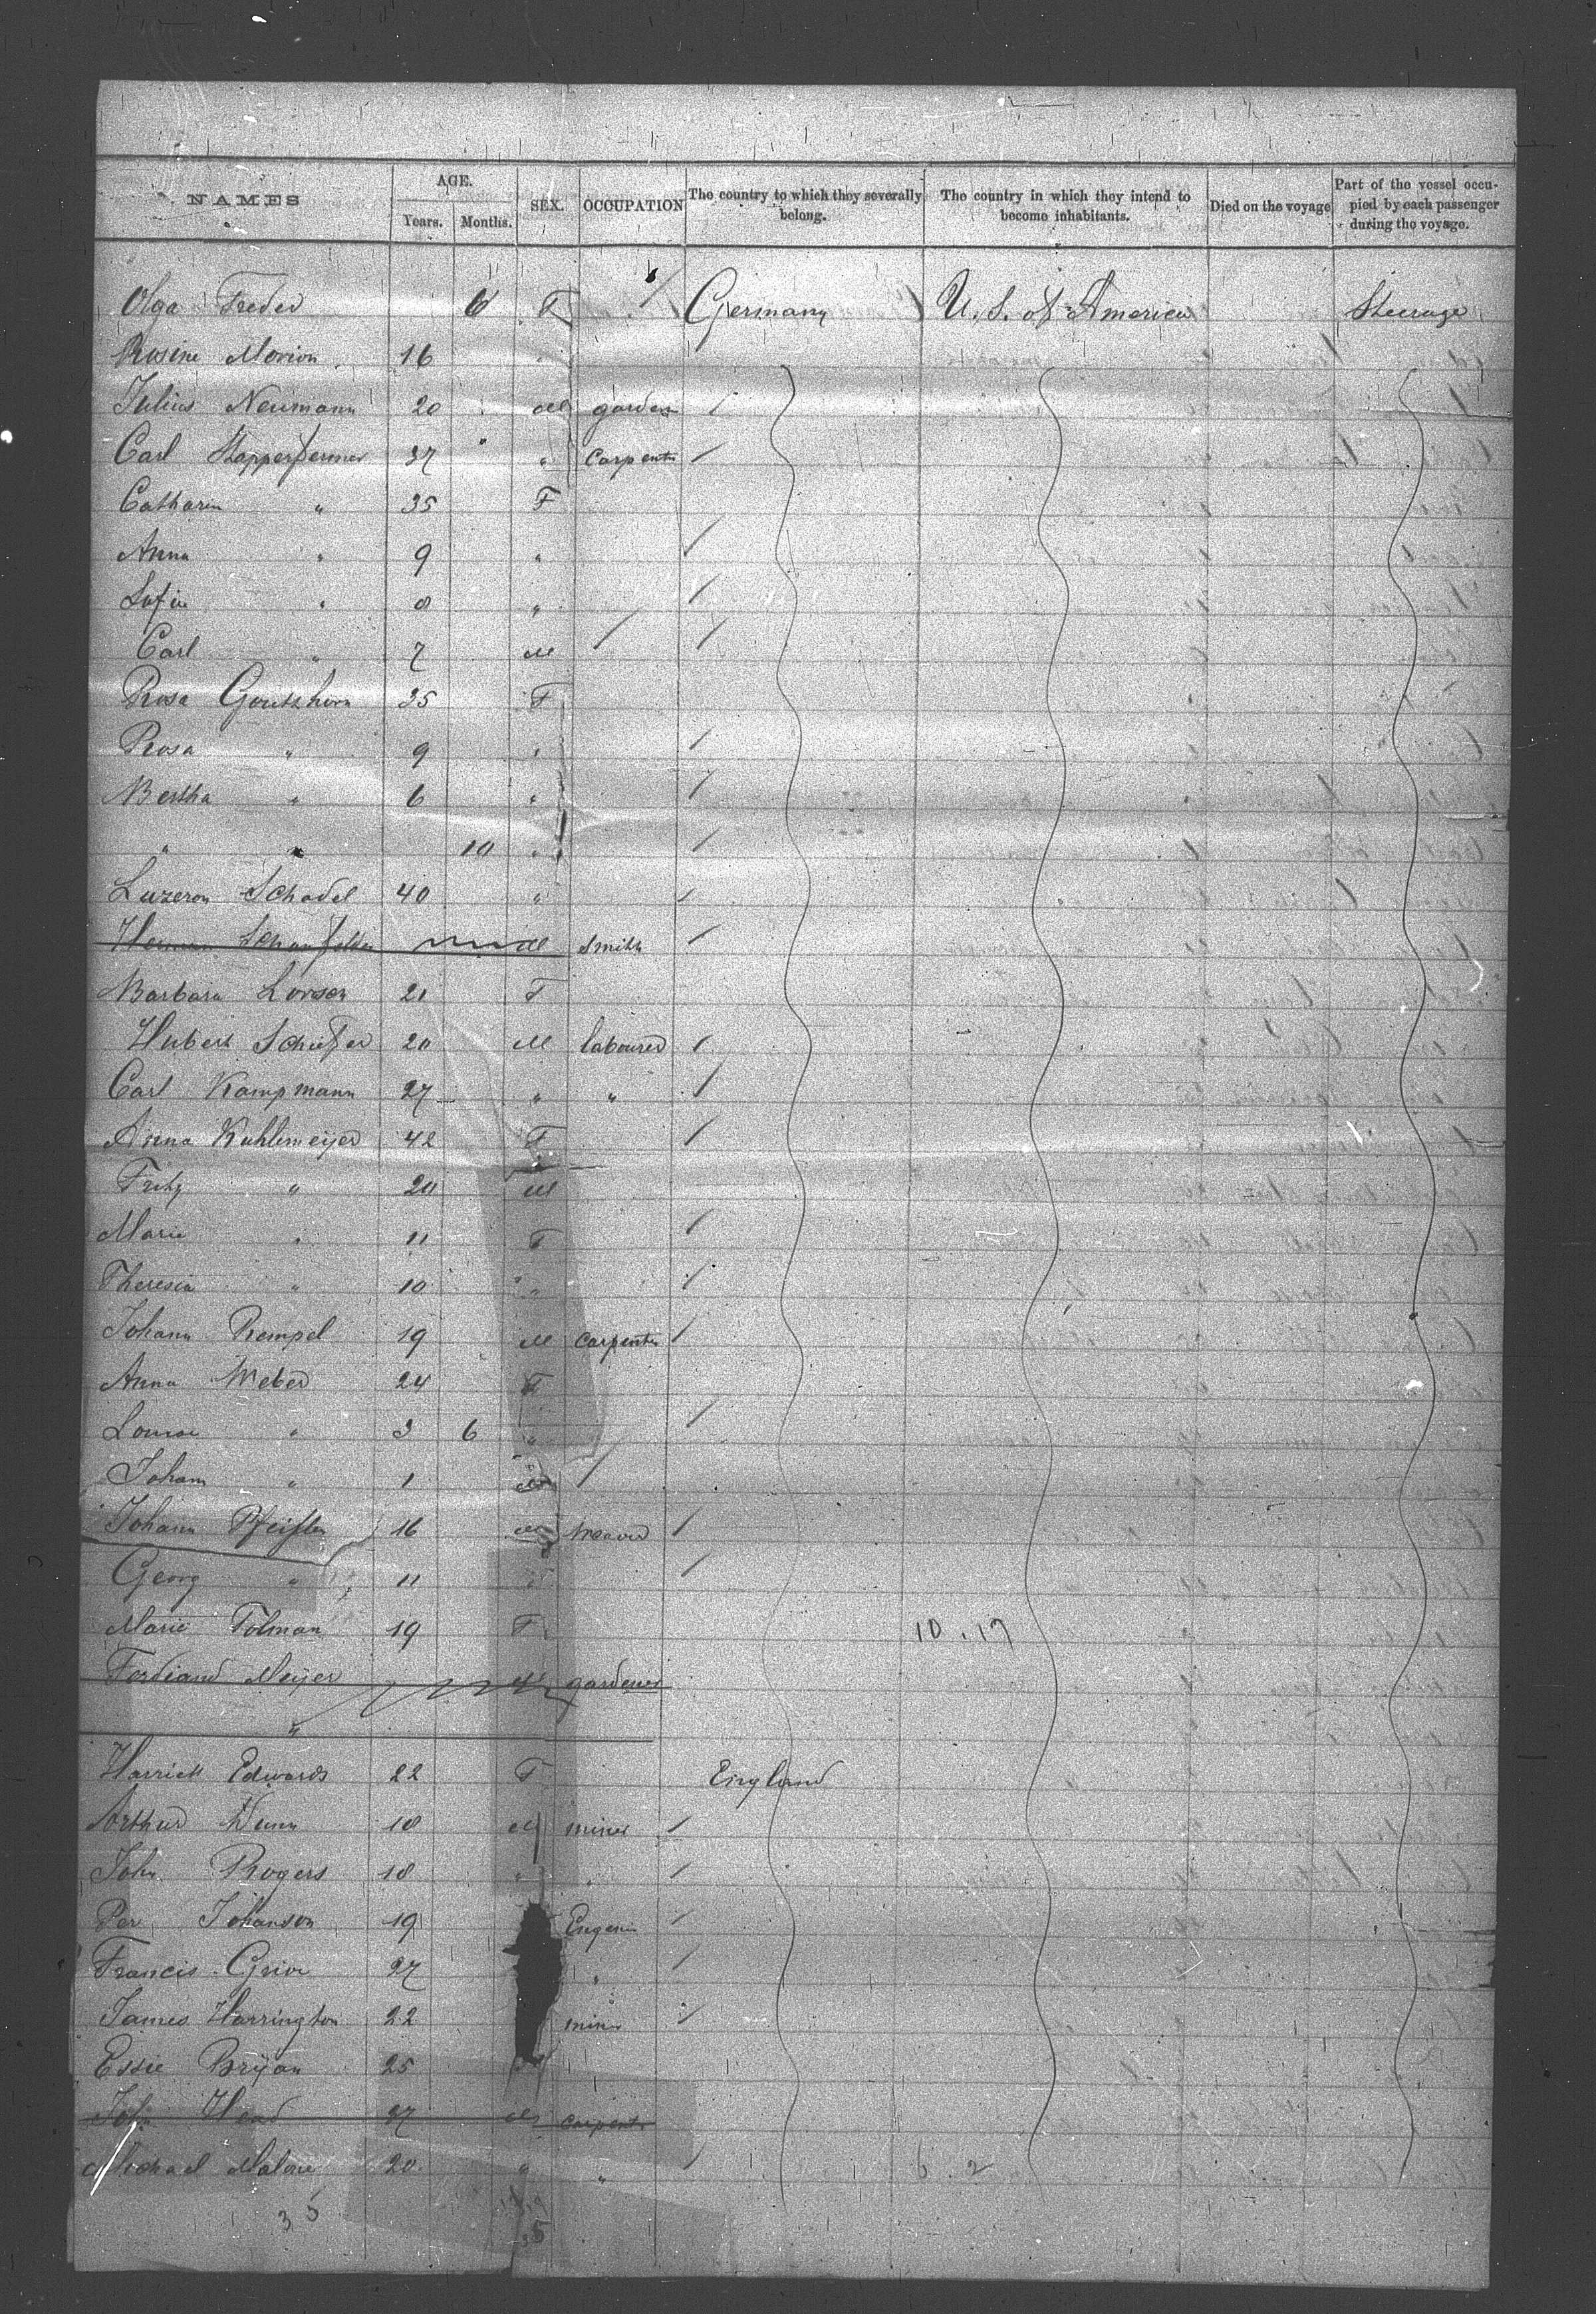 NAMES AGE. Years. Months. SEX. OCCUPATION The country to which they severally belong. The country in which they intend to become inhabitants. Died on the voyage Part of the vessel occupied by each passenger during the voyage.
Olga Freder 6 F Germany U. S. of America Steerage
Rosine Morion 16 "
Julius Neumann 20 M garden
Carl 37 " carpenter
Catharin " 35 F
Anna " 9 "
Sofie " 8 "
Carl " 7 M
Rosa 25 F
Rosa " 9 "
Bertha " 6 "
" " 10 "
Schadel 40 "
Herman M Smith
Barbara Lorsen 21 F
Hubert 20 M labourer
Carl Kampmann 27 " "
Anna Kuhlemeijer 42 F
Fritz " 20 M
Marie " 11 F
Theresia " 10 "
Johann Rempel 19 M carpenter
Anna Weber 24 F
Louise " 3 6 "
Johann " 1 M
Johann Pfeiffer 16 M weaver
Georg " 11 "
Marie Tolman 19 F 10.17
Ferdinand Meijer M gardener
"
Harriett Edwards 22 F England
Arthur Dunn 18 M miner
John Rogers 18 " "
Per Johanson 19 Engenir
Francis 27 "
James Harrington 22 miner
Essie Brijan 25
John Head 27 M carpenter
Michael Malone 20 " "
35 35